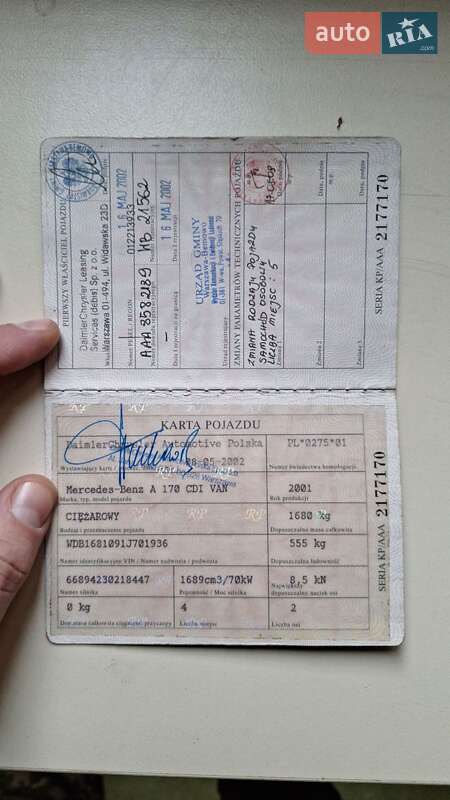 auto RIA
.com
PIERWSZY WŁAŚCICIEL POJAZDU
DaimlerChrysler Leasing
Services (debis) Sp. z o.o.
Warszawa 01-494, ul. Widawska 23D
16 MAJ 2002
012213933
Numer PESEL / REGON
AAA 8582189
WB 21562
16 MAJ 2002
URZĄD GMINY
Warszawa-Bemowo
ZMIANY PARAMETRÓW TECHNICZNYCH POJAZDU
ZMIANA RODZAJU POJAZDU
SAMOCHÓD OSOBOWY
LICZBA MIEJSC: 5
Zmiana 1
Zmiana 2
Zmiana 3
Data, podpis
m.p.
SERIA KP/AAA 2177170
KARTA POJAZDU
DaimlerChrysler Automotive Polska
PL*0275*01
08-05-2002
Wystawiający kartę
Numer świadectwa homologacji
Mercedes-Benz A 170 CDI VAN
2001
Marka, typ, model pojazdu
Rok produkcji
CIĘŻAROWY
1680 kg
Rodzaj i przeznaczenie pojazdu
Dopuszczalna masa całkowita
WDB1681091J701936
555 kg
Numer identyfikacyjny VIN / Numer nadwozia / podwozia
Dopuszczalna ładowność
66894230218447
1689cm3/70kW
8,5 kN
Numer silnika
Pojemność / Moc silnika
Największy dopuszczalny nacisk osi
0 kg
4
2
Dop. masa całkowita ciągniętej przyczepy
Liczba miejsc
Liczba osi
SERIA KP/AAA 2177170